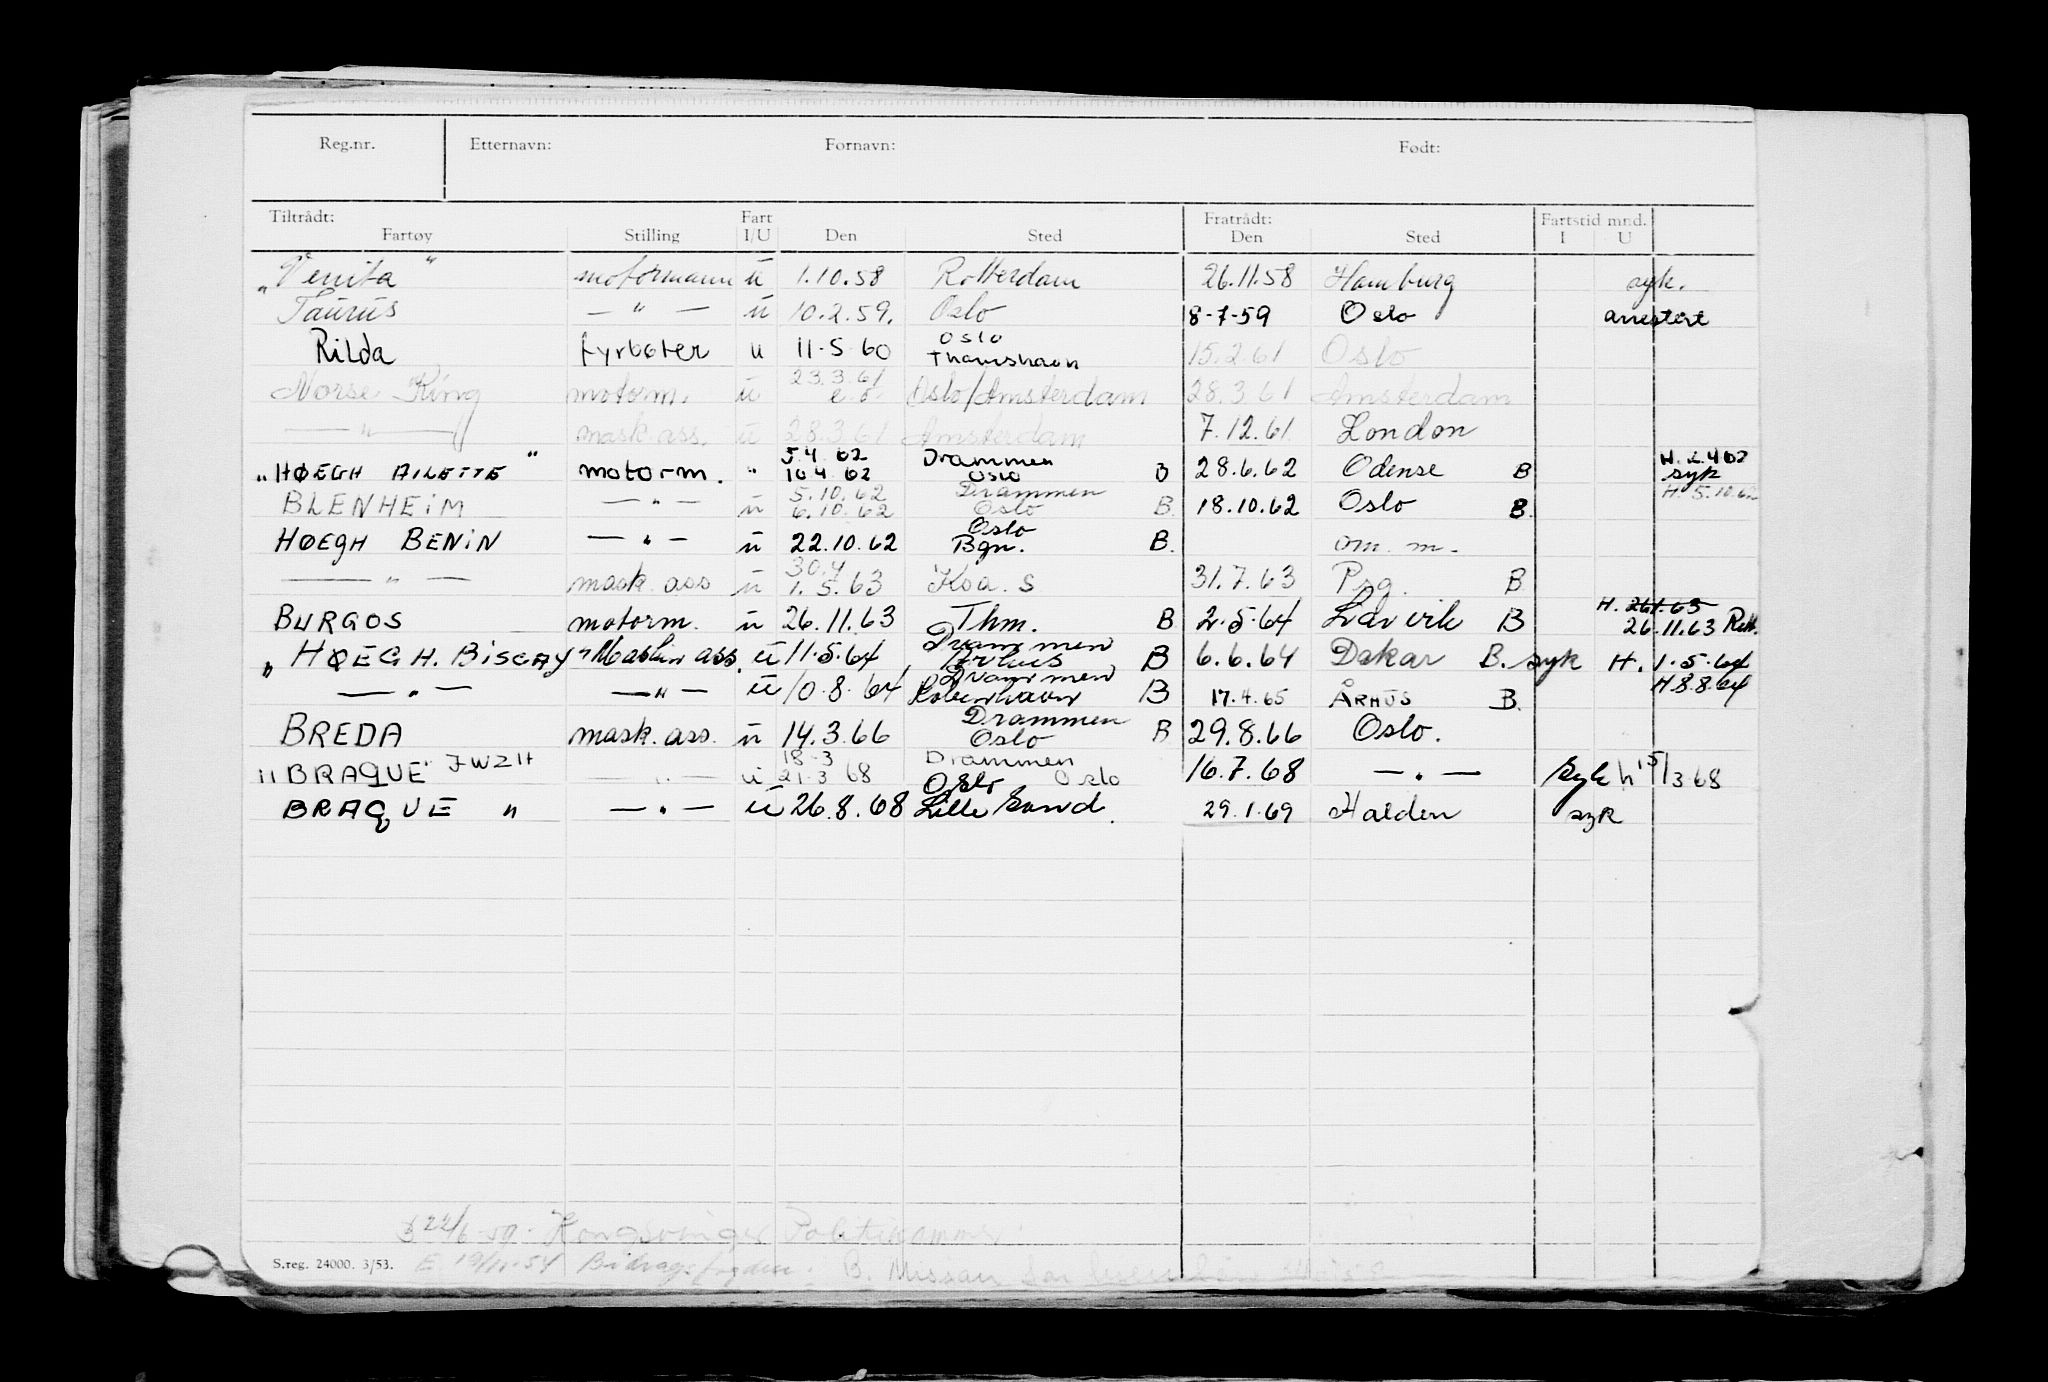 Reg.nr. Etternavn: Fornavn: Født:
Tiltrådt: Fart Fratrådt: Fartstid mnd.
Fartøy Stilling I/U Den Sted Den Sted I U
"Venita" motormann u 1.10.58 Rotterdam 26.11.58 Hamburg syk.
Taurus — " — u 10.2.59. Oslo 8-7-59 Oslo arrestert
Oslo
Rilda fyrbøter u 11-5-60 Thamshavn 15.2.61 Oslo
23.3.61
Norse King motorm. u e.o. Oslo/Amsterdam 28.3.61 Amsterdam
— " — mask.ass. u 28.3.61 Amsterdam 7.12.61. London
5.4.62 Drammen H. 2.4.62
"HØEGH AILETTE" motorm. " 10.4.62 Oslo B 28.6.62 Odense B syk
5.10.62 Drammen H. 5.10.62
BLENHEIM — " — u 6.10.62 Oslo B. 18.10.62 Oslo B.
Oslo
HØEGH BENIN — " — u 22.10.62 Bgn. B. om. m.
30.4
— " — mask. ass u 1.5.63 Koa. S 31.7.63 Prg. B
H. 26.1.63
BURGOS motorm. u 26.11.63 Thm. B 2.5.64 Larvik B 26.11.63 Rett.
Drammen
"HØEGH. BISCAY" Maskin ass. u 11.5.64 B 6.6.64 Dakar B. syk H. 1.5.64
Drammen H 8.8.64
— " — — " — u 10.8.64 København B 17.4.65 ÅRHUS B.
Drammen
BREDA mask. ass. u 14.3.66 Oslo B 29.8.66 Oslo.
18-3 Drammen
"BRAQUE" JWZH — " — u 21.3 68 Oslo Oslo 16.7.68 — " — Syk h 15/3 68
BRAQUE " — " — u 26.8.68 Lillesand. 29.1.69 Halden syk
22/6-50. Kongsvinger Politikammer
S.reg. 24000. 3/53. E 19/11-54 Bidragsfogden. B.